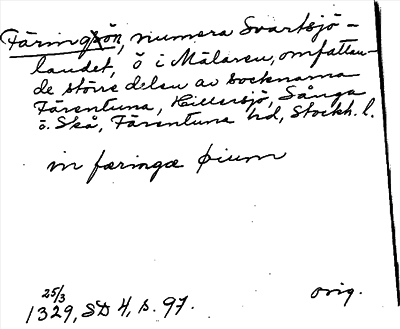 Färingön, numera Svartsjö-
landet, ö i Mälaren, omfattan-
de större delen av socknarna
Färentuna, Hilleshög, Sånga
o. Skå, Färentuna hd, Stockh. l.
in færingæ øium
25/3
1329, SD 4, s. 97.
orig.